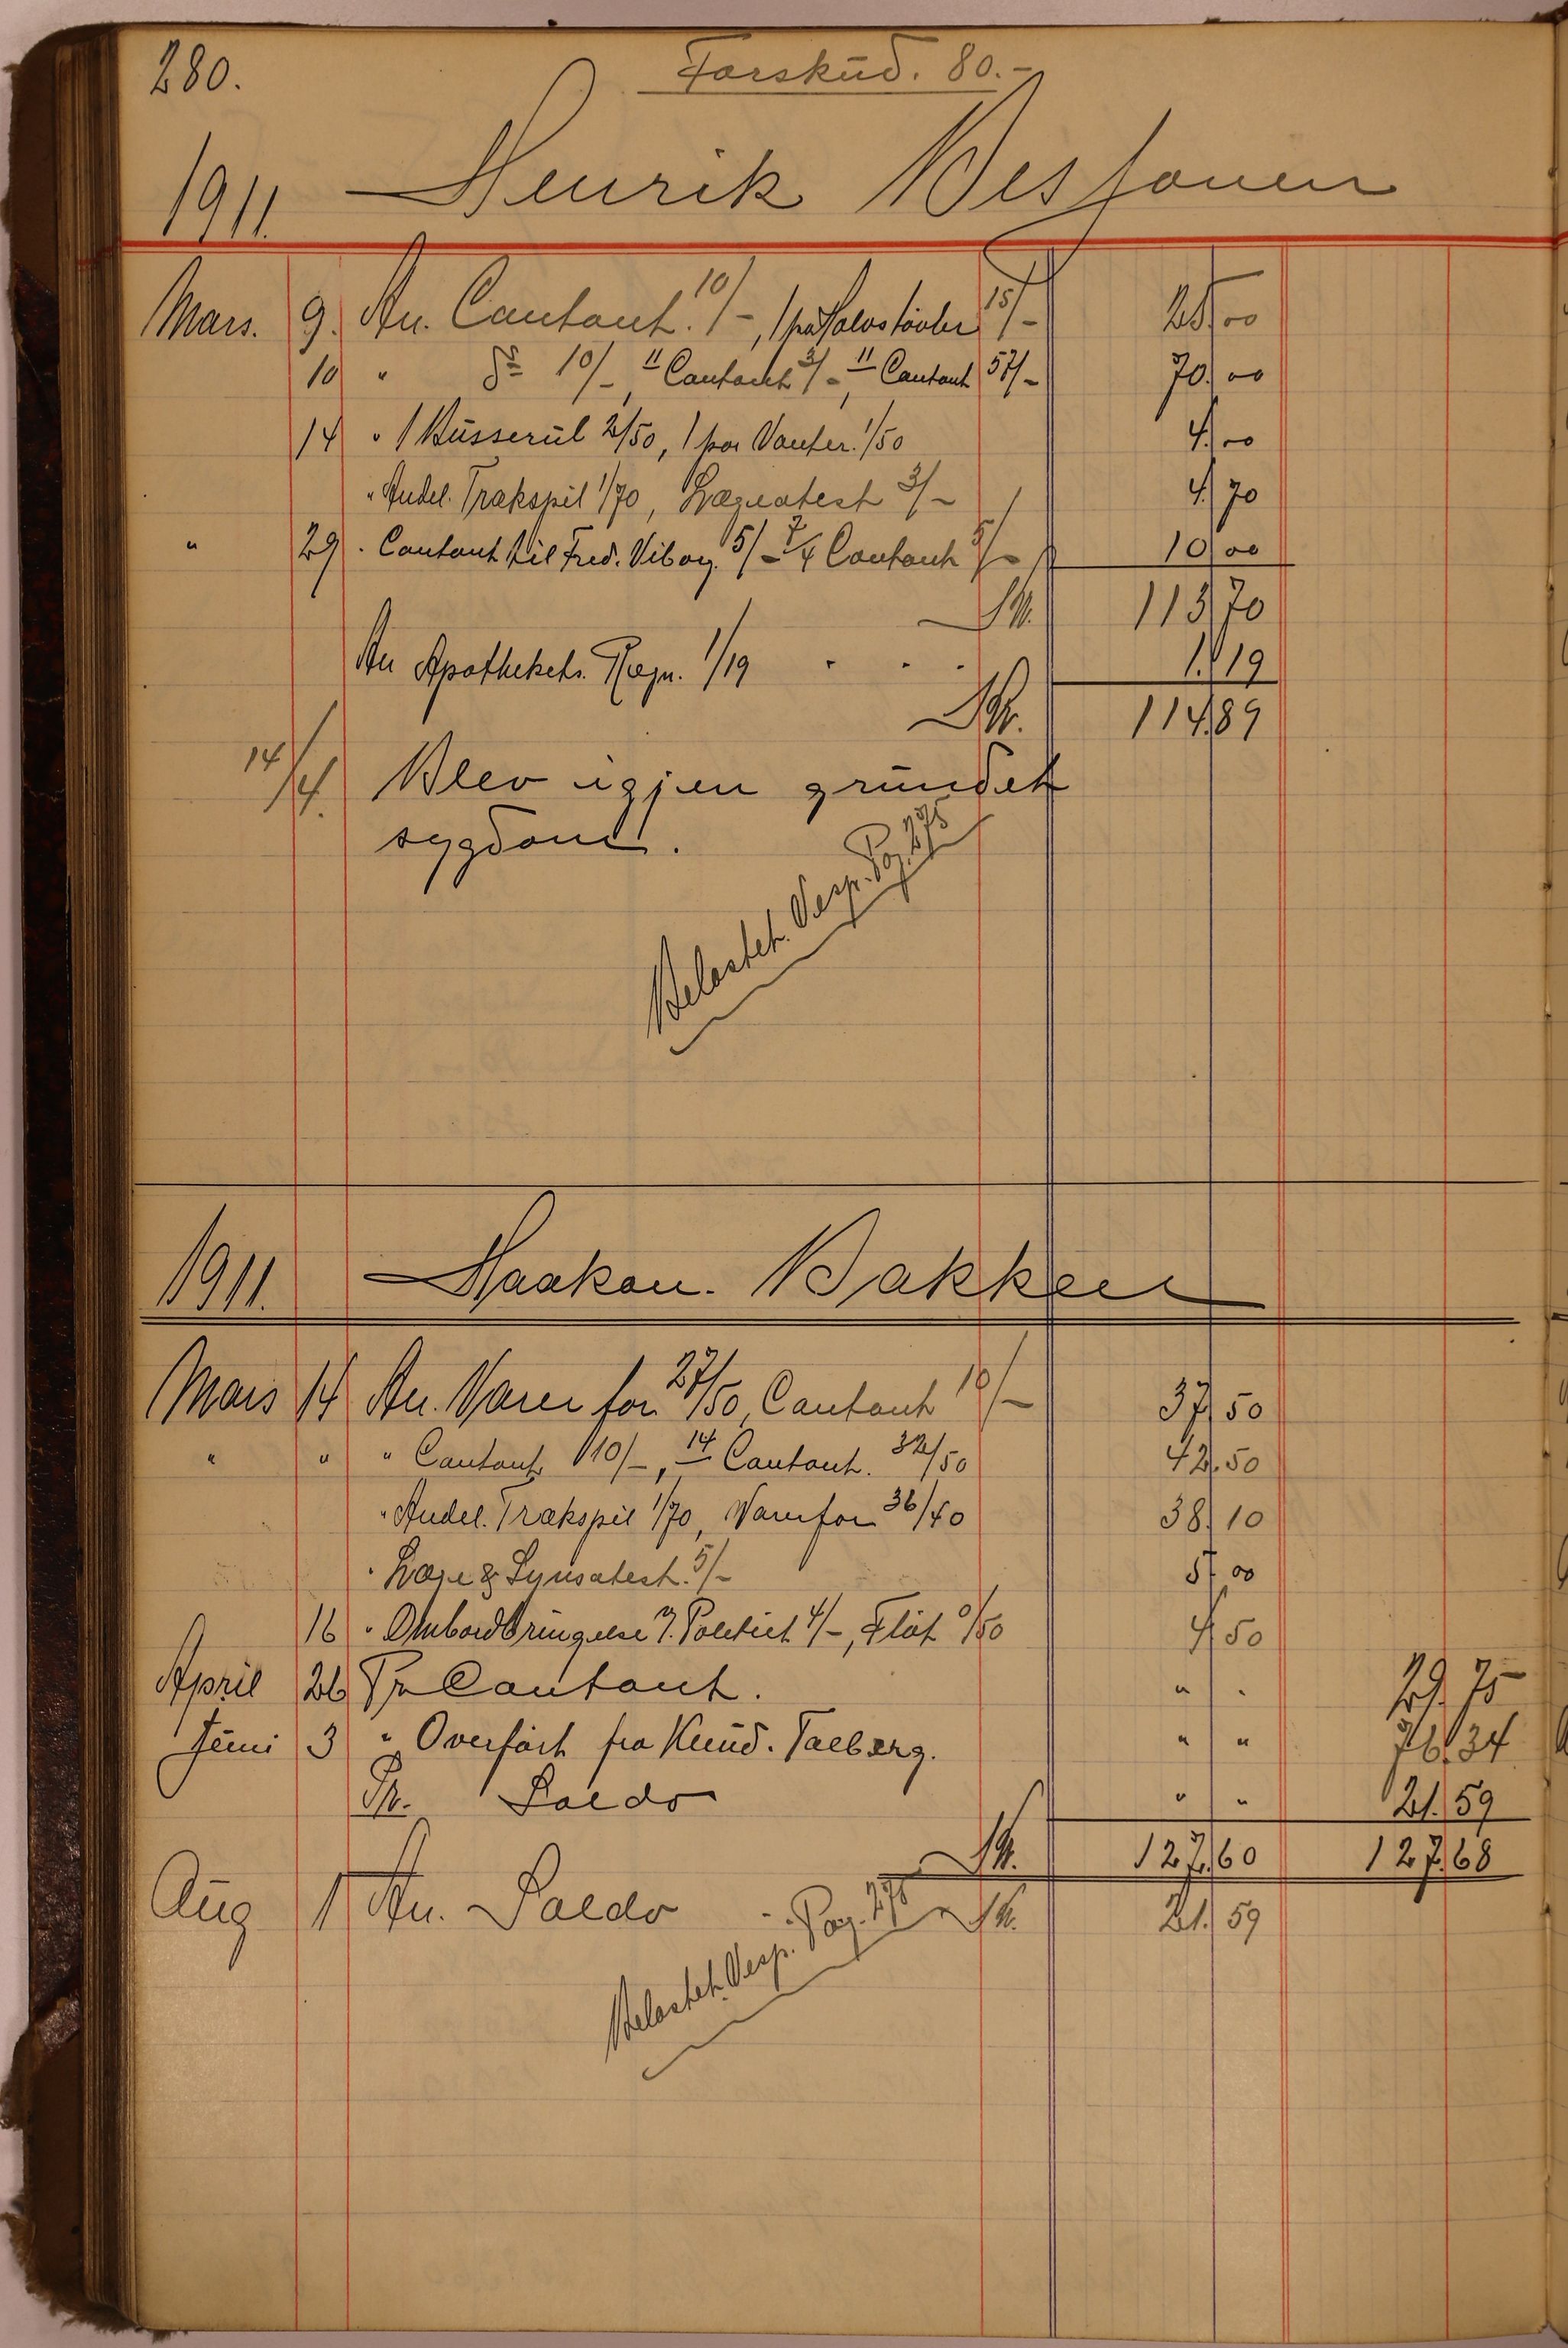 280.
Forskud. 80.-
1911. Henrik Vesfonen
Mars. 9. An. Contant. 10/-, 1 par Halvstövler 15/- 25,00
10 " do 10/-, 11 Contant 3/-, 11 Contant 57/- 70,00
14 " 1 Busserul 2/50, 1 par Vanter. 1/50 4,00
" Andel. Trækspil 1/70, Lægeatest 3/- 4,70
" 29 . Contant til Fred. Viborg. 5/- 7/4 Contant 5/- 10,00
Kr. 113,70
An Apothekets. Regn. 1/19 . . . 1.19
Kr. 114.89
14/4. Blev igjen grundet
sygdom.
Belastet. Vesp. Pag. 275
1911. Haakon. Bakken
Mars 14 An. Varer for 27/50, Contant 10/- 37,50
" " " Contant 10/-, 14 Contant. 32/50 42.50
" Andel. Trækspil 1/70, Varer for 36/40 38.10
" Læge & Synsatest. 5/- 5,00
16 " Ombordbringelse v. Politiet 4/-, Flöt 0/50 4,50
April 26 Pr Contant. " " 29. 75
Juni 3 " Overfört fra Knud. Talberg. " " 76.34
Pr. Saldo " " 21.59
Kr. 127.60 127.68
Aug 1 An. Saldo - . . Kr. 21.59
Belastet. Vesp. Pag. 275